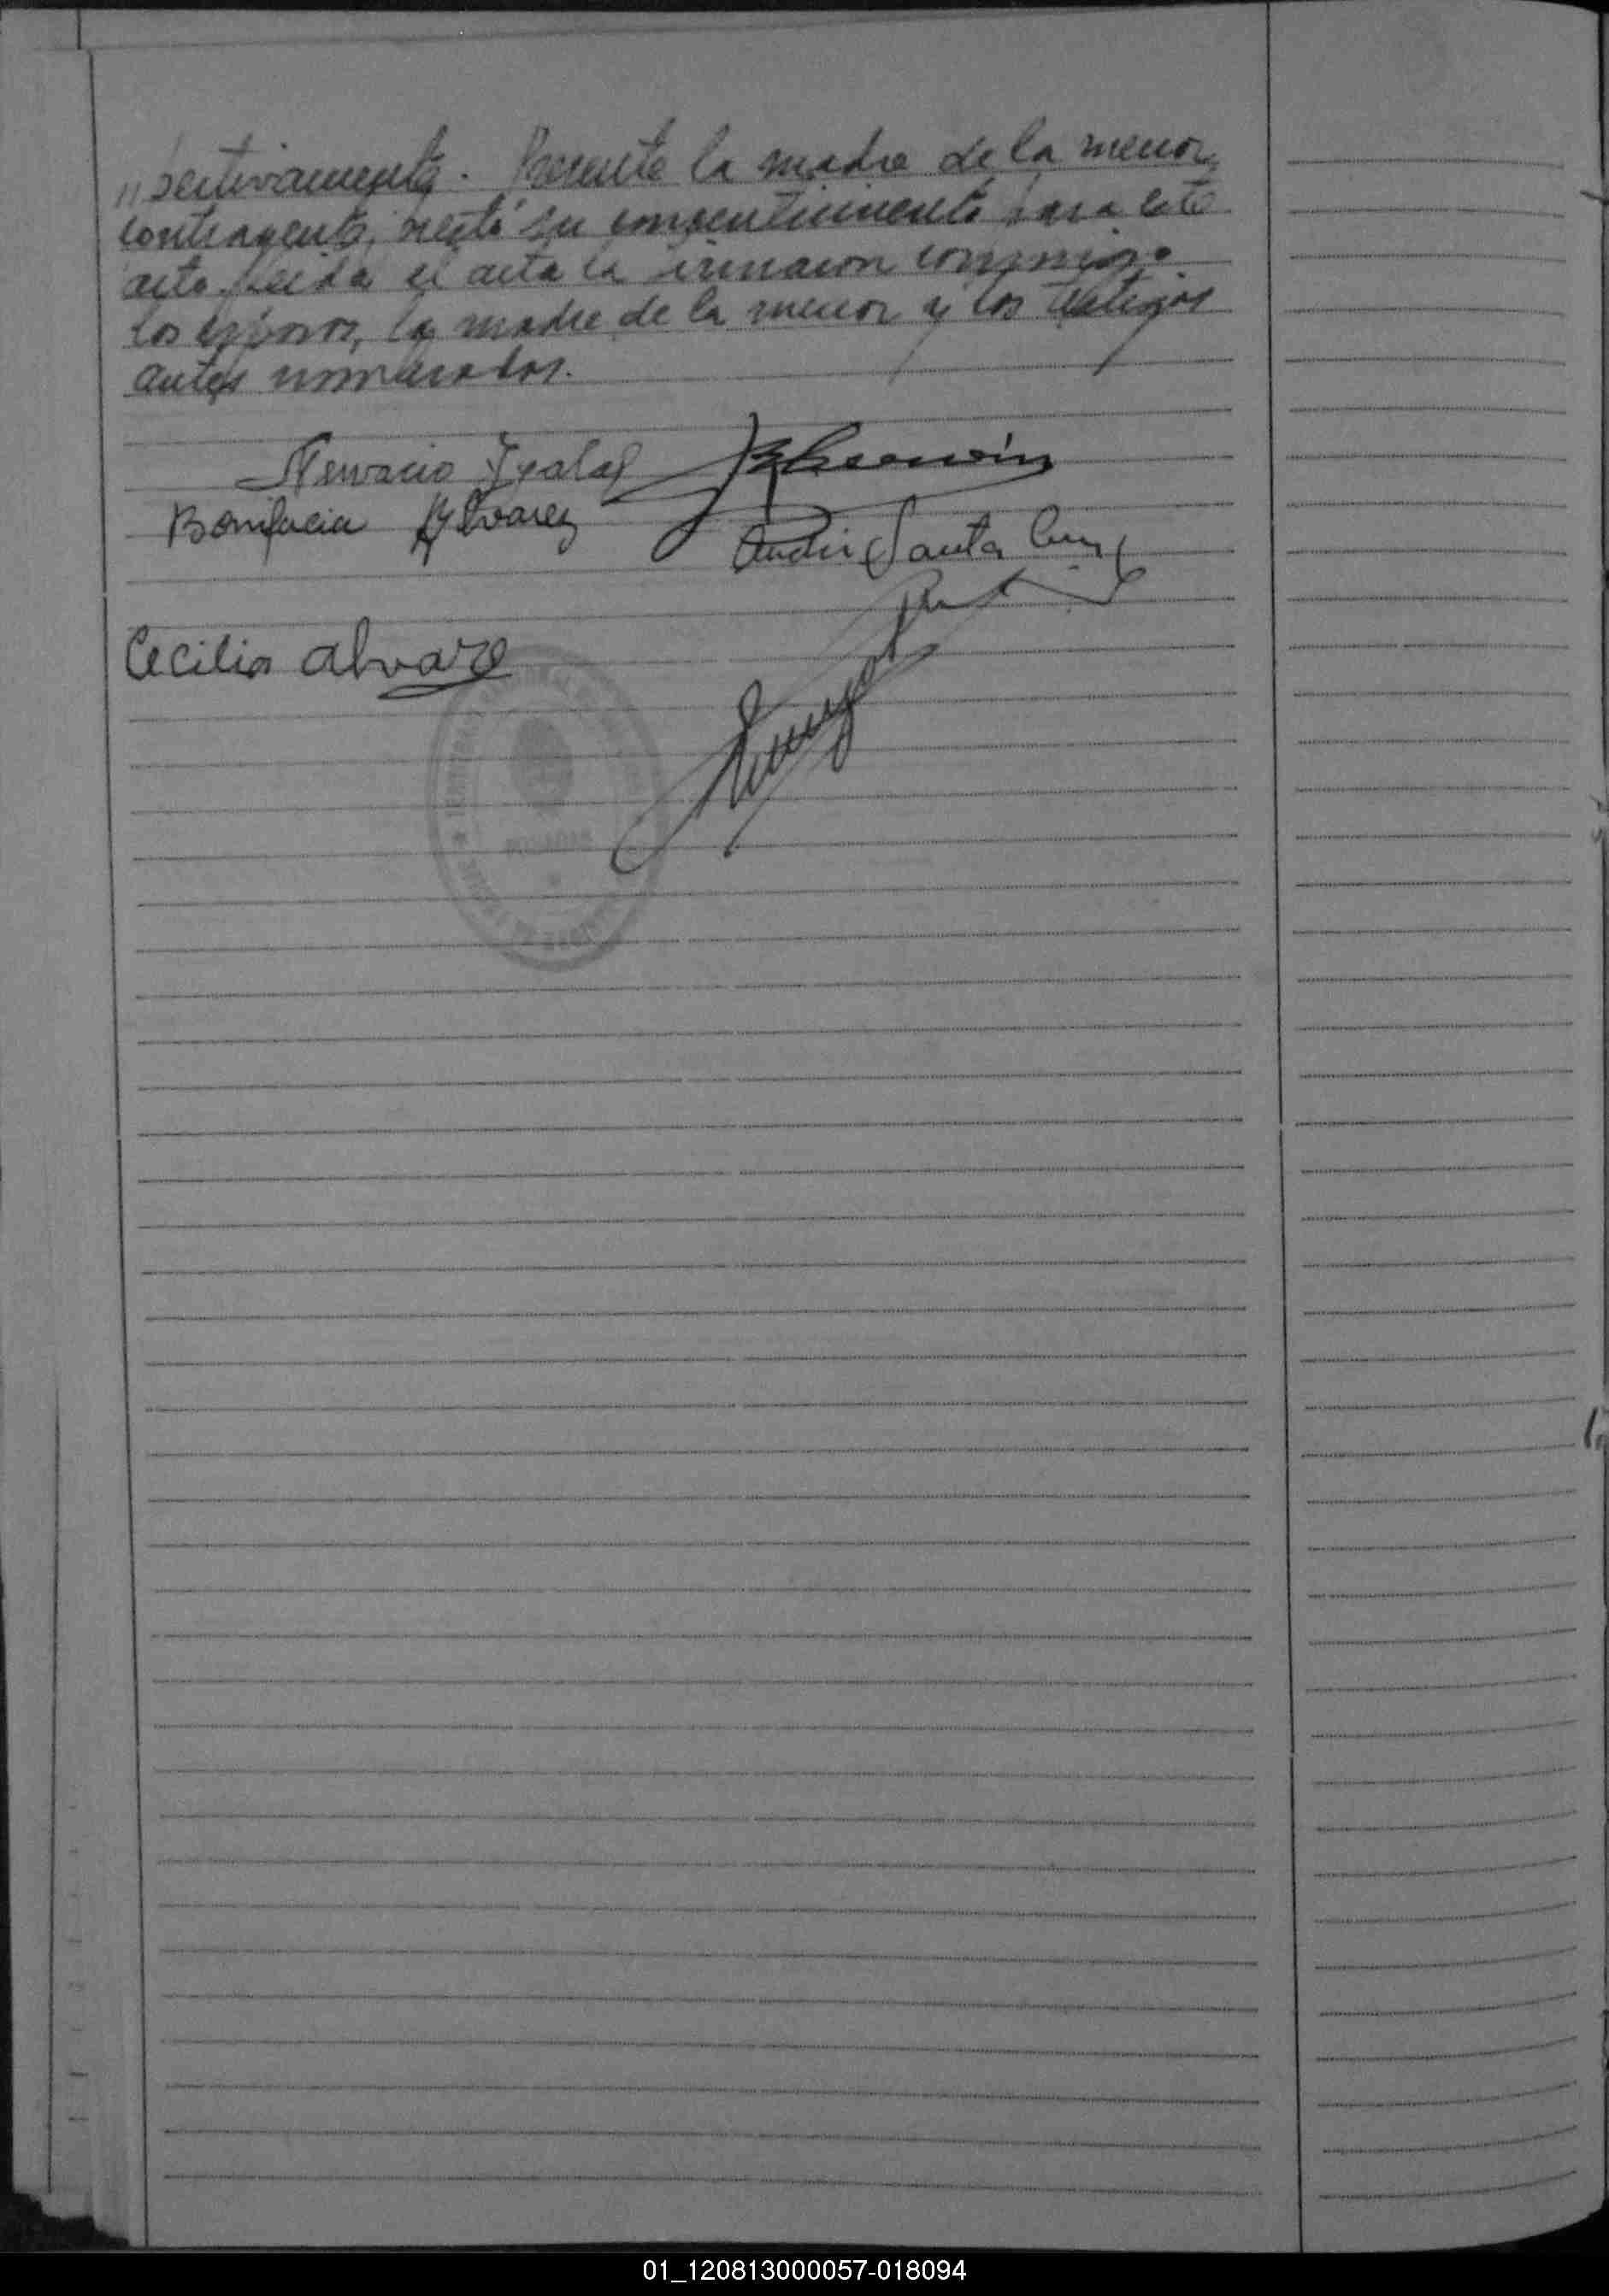 " pectivamente. Presente la madre de la menor
contrayente, prestó su consentimiento para este
acto. Leida el acta la firmaron conmigo
los esposos, la madre de la menor y los testigos
antes nombrados.
Nervacio
Bonifacia Alvarez
Santa Cruz
Cecilia alvare
01_120813000057-018094